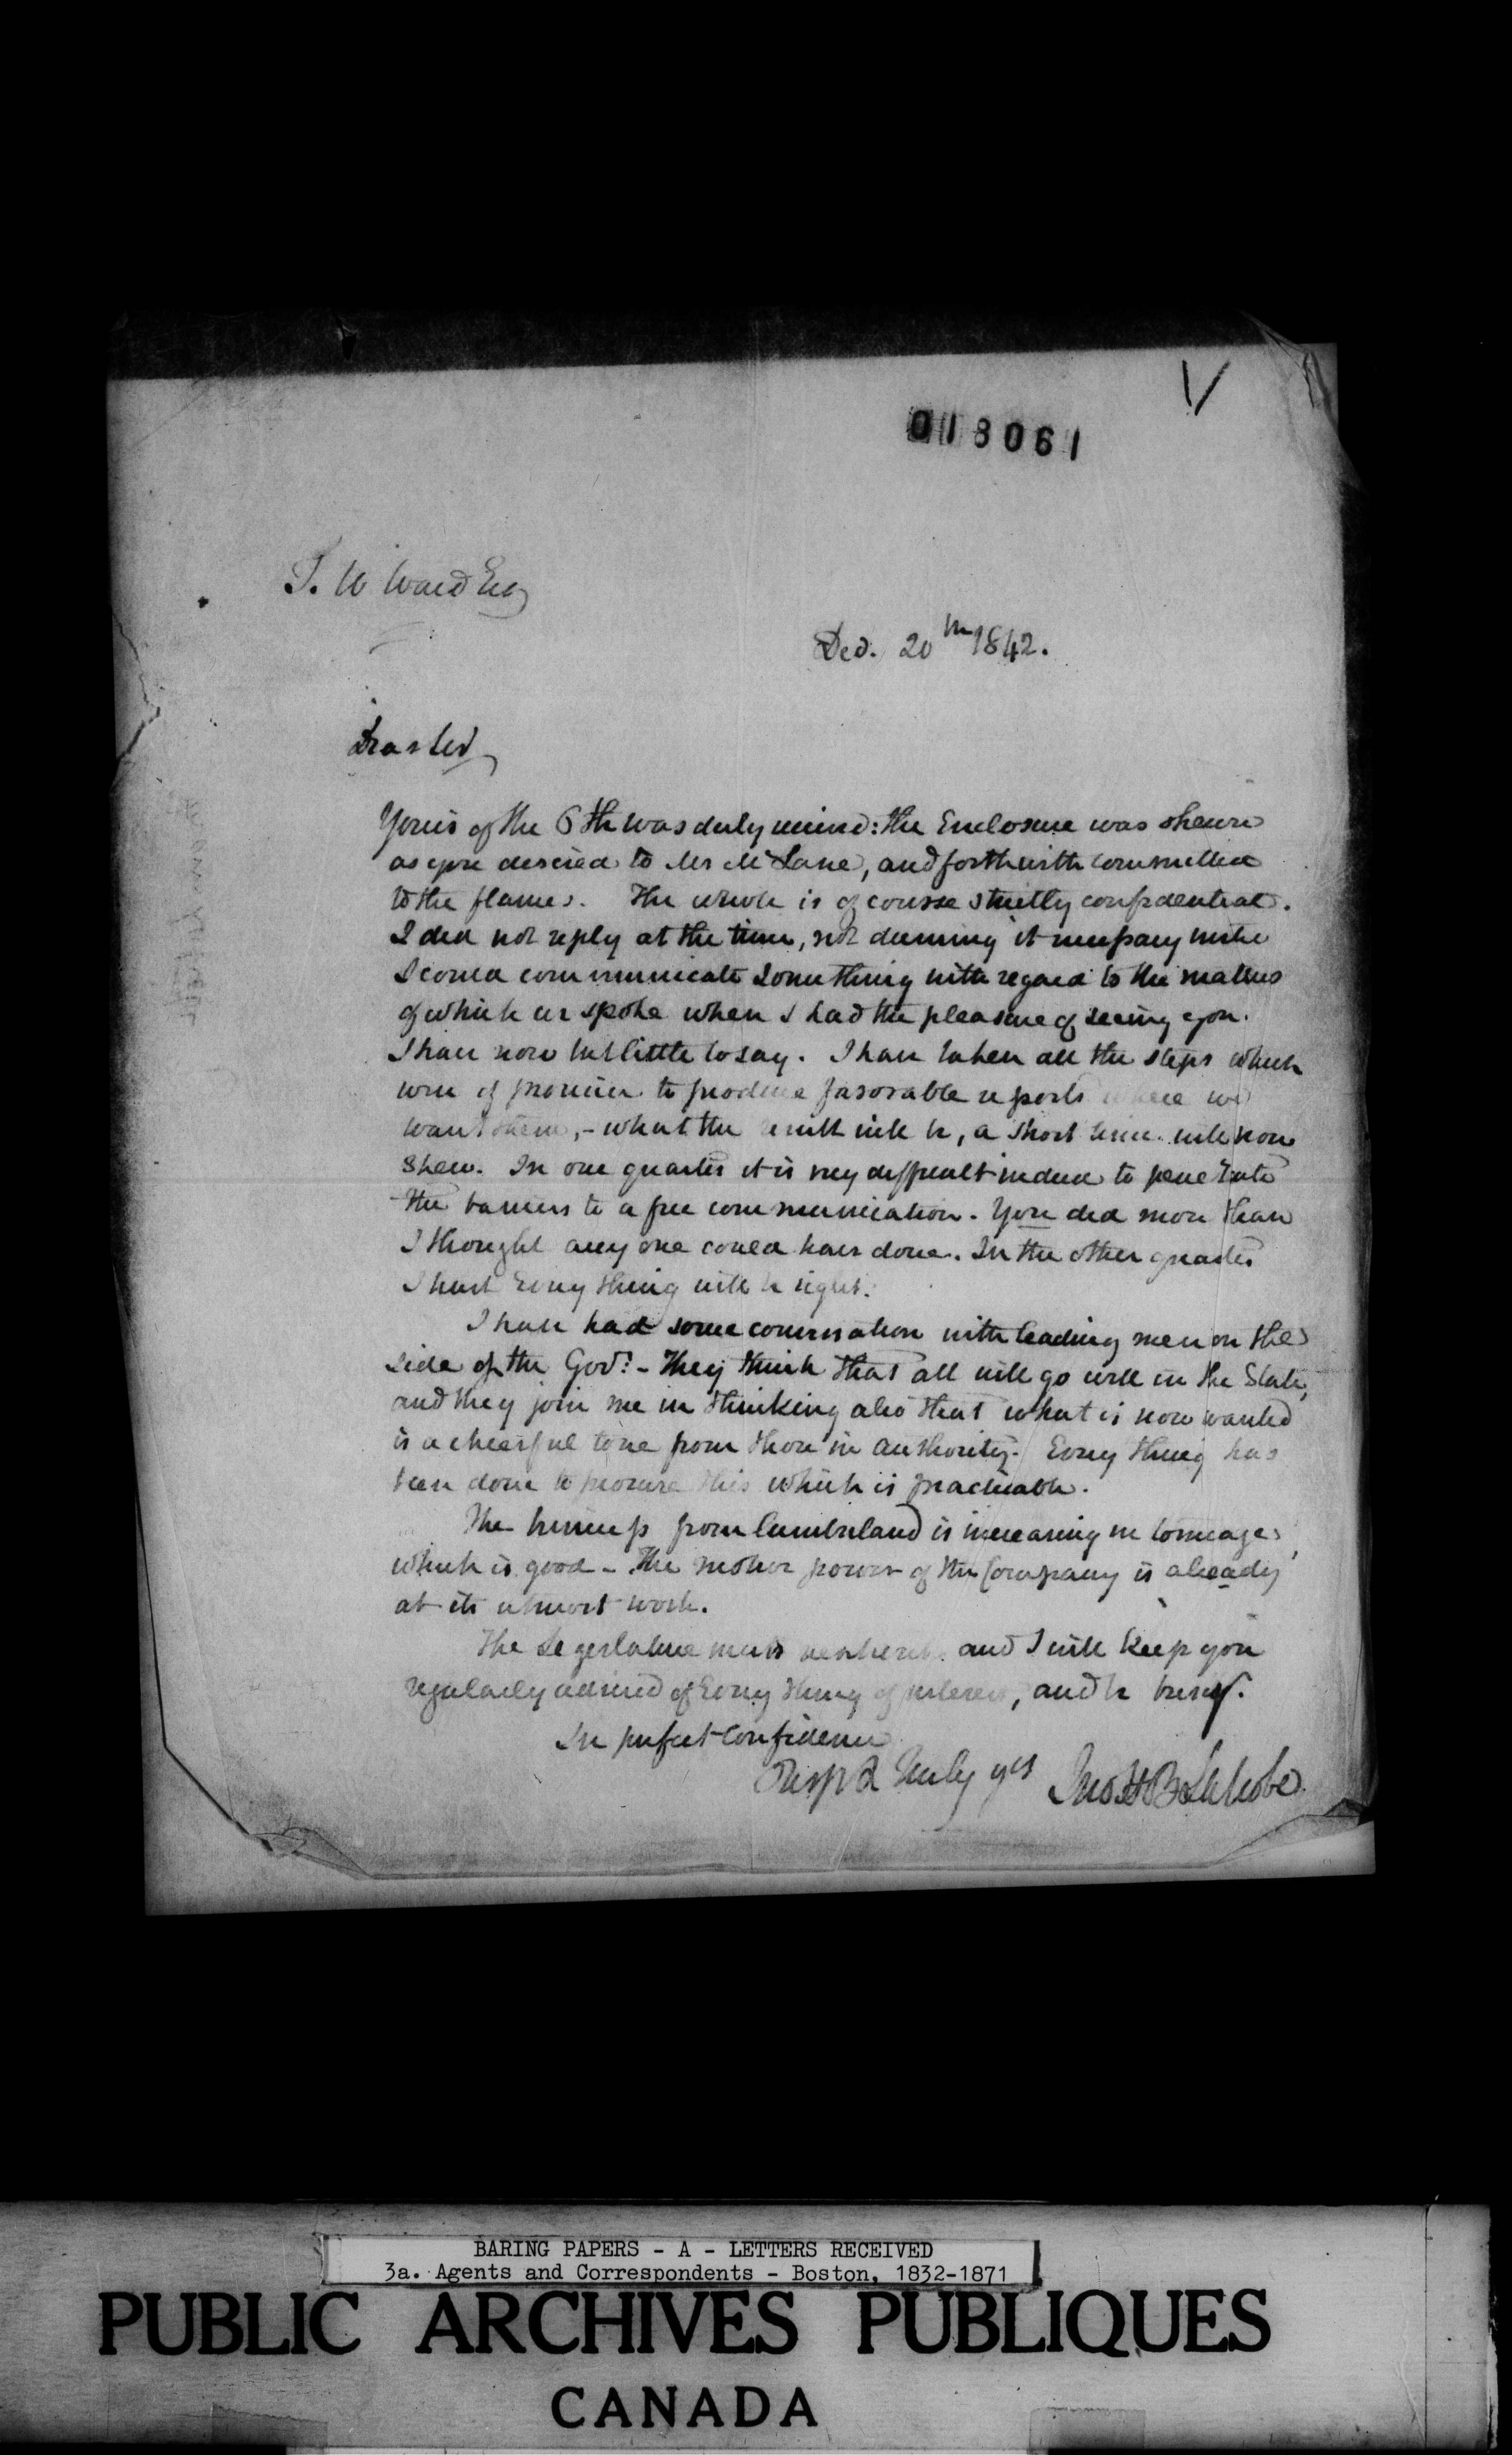 018061
T. W Ward Esq
Dec. 20th 1842.
Dear Sir,
Yours of the 6th was duly received: the Enclosure was shewn
as you desired to Mr McLane, and forthwith committed
to the flames. The whole is of course strictly confidential.
I did not reply at the time, not deeming it necessary until
I could communicate something with regard to the matters
of which we spoke when I had the pleasure of seeing you.
I have now but little to say. I have taken all the steps which
were of promise to produce favorable reports where we
want them,- what the result will be, a short time will now
shew. In one quarter it is very difficult indeed to penetrate
the barriers to a free communication. You did more than
I thought any one could have done. In the other quarter
I trust Every thing will be right.
I have had some conversation with leading men on the
side of the Govt.- They think that all will go well in the State,
and they join me in thinking also that what is now wanted
is a cheerful tone from those in authority. Every thing has
been done to procure this which is practicable.
The business from Cumberland is increasing in tonnage,
which is good - The motive power of the Company is already
at its utmost work.
The Legislature meets and I will keep you
regularly advised of Every thing of interest, and be busy.
In perfect Confidence
Resp & Truly yrs Jno H B Latrobe
BARING PAPERS - A - LETTERS RECEIVED
3a. Agents and Correspondents - Boston, 1832-1871
PUBLIC ARCHIVES PUBLIQUES
CANADA